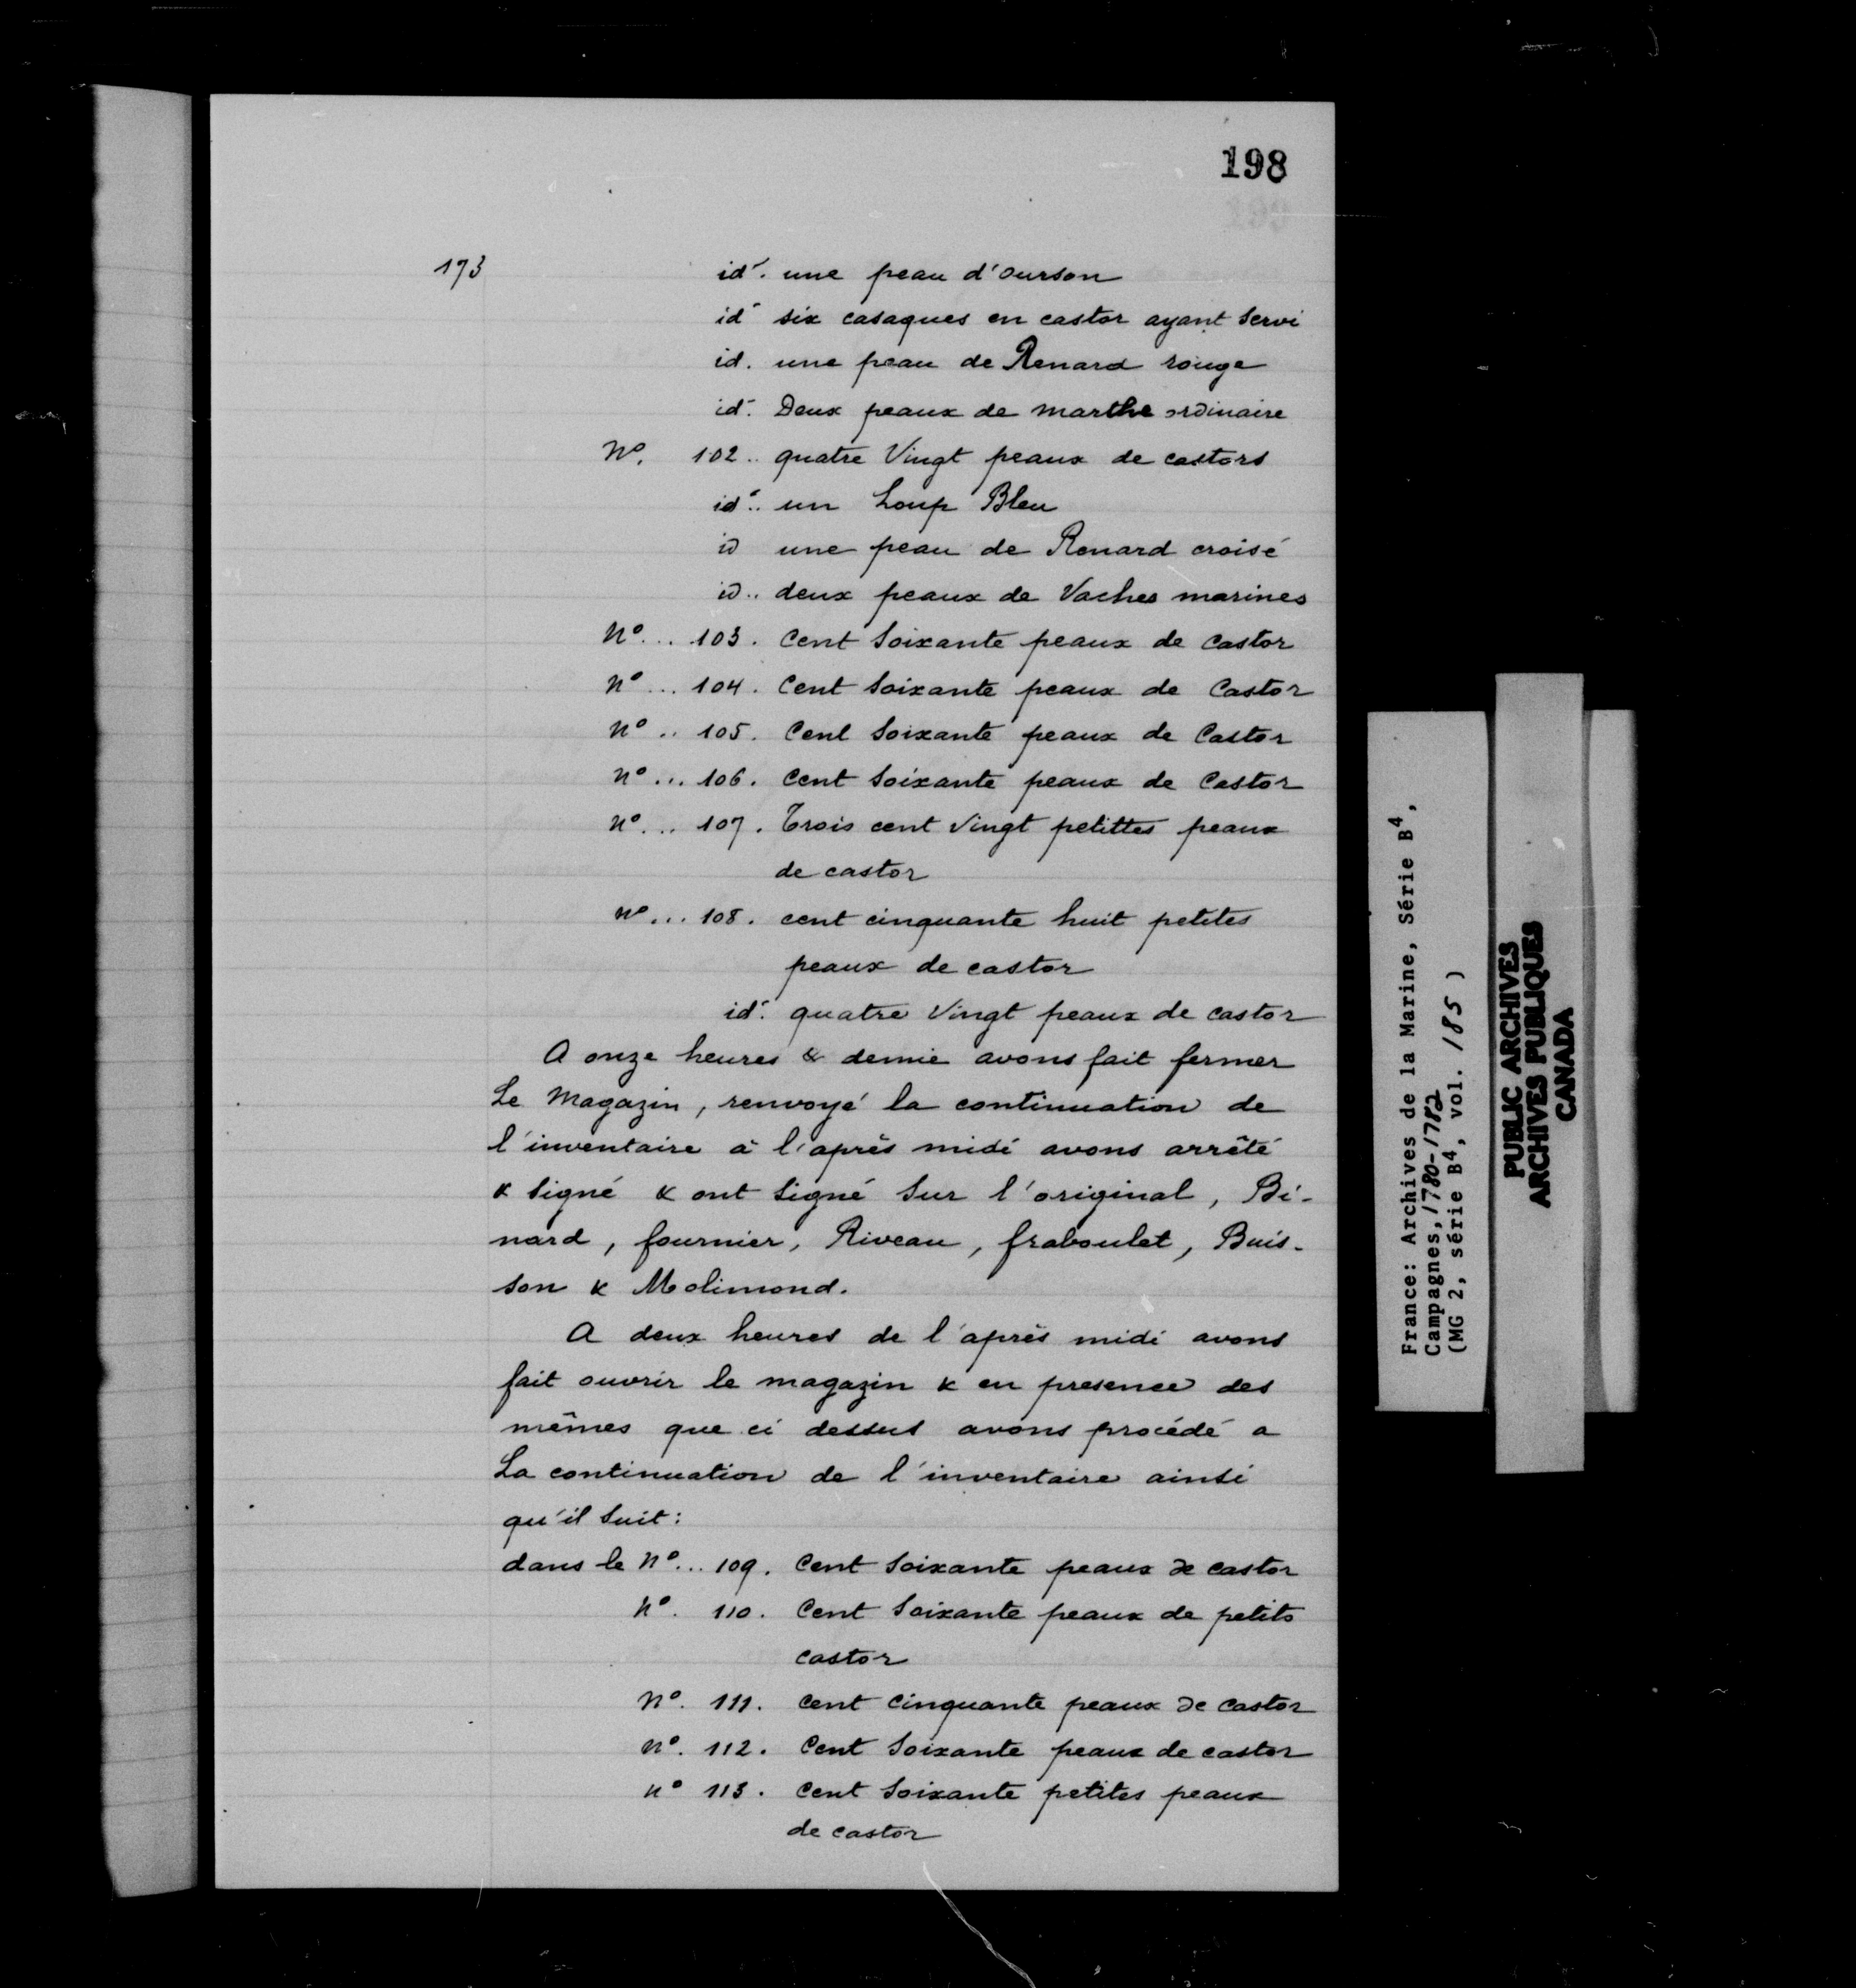 198
173
id. une peau d'ourson
id six casaques en castor ayant servi
id. une peau de Renard rouge
id. Deux peaux de marthe ordinaire
No. 102.. quatre Vingt peaux de castors
id.. un Loup Bleu
id une peau de Renard croisé
id.. deux peaux de Vaches marines
No... 103. Cent soixante peaux de castor
no... 104. Cent soixante peaux de Castor
no.. 105. Cent soixante peaux de Castor
no... 106. Cent soixante peaux de Castor
no... 107. Trois cent vingt petittes peaux
de castor
no... 108. cent cinquante huit petites
peaux de castor
id. quatre vingt peaux de castor
A onze heures & demie avons fait fermer
Le Magazin, renvoyé la continuation de
l'inventaire à l'après midi avons arrêté
& signé & ont signé sur l'original, Bi-
nard, fournier, Riveau, fraboulet, Buis-
son & Molimond.
A deux heures de l'après midi avons
fait ouvrir le magazin & en presence des
mêmes que ci dessus avons procédé a
La continuation de l'inventaire ainsi
qu'il suit:
dans le No... 109. Cent soixante peaux de castor
No. 110. Cent soixante peaux de petits
castor
No. 111. cent cinquante peaux de castor
no. 112. Cent soixante peaux de castor
no 113. Cent soixante petites peaux
de castor
France: Archives de la Marine, Série B4,
Campagnes, 1780-1782
(MG 2, série B4, vol. 185)
PUBLIC ARCHIVES
ARCHIVES PUBLIQUES
CANADA